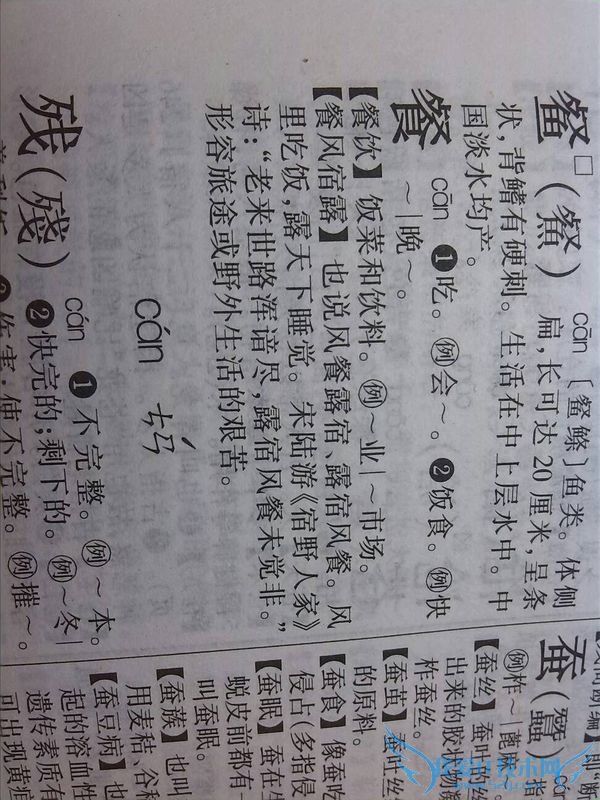 䱗□（䱗） cān 〔䱗鲦〕鱼类。体侧
扁，长可达20厘米，呈条
状，背鳍有硬刺。生活在中上层水中。中
国淡水均产。
餐 cān ❶吃。例会～。❷饭食。例快
～|晚～。
【餐饮】饭菜和饮料。例～业|～市场。
【餐风宿露】也说风餐露宿、露宿风餐。风
里吃饭，露天下睡觉。宋陆游《宿野人家》
诗：“老来世路浑谙尽，露宿风餐未觉非。”
形容旅途或野外生活的艰苦。
cán ㄘㄢˊ
残（殘） cán ❶不完整。例～本。
❷快完的；剩下的。例～冬|
❸伤害；使不完整。例摧～。
蚕（蠶）
例柞～|蓖
【蚕丝】蚕吐的丝
出来的胶状物凝
柞蚕丝。
【蚕茧】蚕吐丝
的原料。
【蚕食】像蚕吃
侵占（多指侵
【蚕眠】蚕在生
蜕皮前都有
叫蚕眠。
【蚕蔟】也叫
用麦秸、谷秆
【蚕豆病】也
起的溶血性
遗传素质有
可出现黄疸